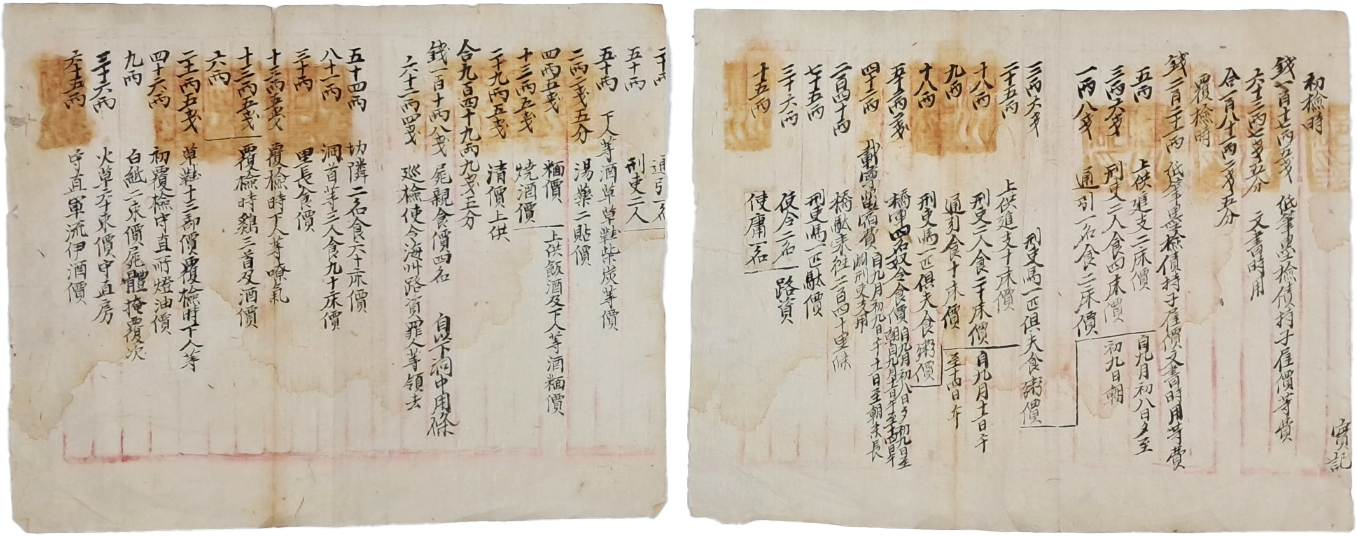 實記
初檢時
錢一百十二兩五戔 紙筆墨檢債持子雇價等費
六十三兩七戔五分 文書時用
合一百八十兩二戔五分
覆檢時
錢二百二十兩 紙筆墨檢債持子雇價文書時用等費
五兩 上供進支二床價
三兩六戔 刑吏二人食四床價
自九月初八日夕至
初九日朝
一兩八戔 通引一名食二床價
三兩六戔 刑吏馬一匹俱夫食粥價
二十五兩 上供進支十床價
十八兩 刑吏二人食二十床價
自九月十一日午
至十四日午
九兩 通引食十床價
十八兩 刑吏馬一匹俱夫食粥價
五十兩四戔 橋軍四名奴令食價 自九月初八日夕初九日至朝自九月十一日午至十四日早
四十二兩 宿費 自九月初九日十一日至朝 刑吏用
二百四十兩 橋駄來往二百四十里條
七十五兩 刑吏馬一匹駄價
三十六兩 使令二名
路資
十五兩 使庸一名
二十兩 通引一名
五十兩 刑吏二人
五十兩 下人等酒草草鞋柴炭等價
二兩二戔五分 湯藥二貼價
四兩五戔 糆價
上供飯酒及下人等酒糆價
十三兩五戔 燒酒價
二十九兩五戔 清價上供
合九百四十九兩九戔五分
錢一百十兩八戔 屍親食價四名 自以下洞中用條
六十二兩四戔 巡檢使令海州路資罪人等領去
五十四兩 切隣二名食六十床價
八十一兩 洞首等三人食九十床價
三十兩 里長食價
十三兩五戔 覆檢時下人等嘹氣
十三兩五戔 覆檢時鷄三首及酒價
六兩
二十二兩五戔 草鞋十三部價覆檢時下人等
四十六兩 初覆檢守直所燈油價
九兩 白紙二束價屍體掩覆次
三十六兩 火草二十束價守直房
六十五兩 守直軍流伊酒價